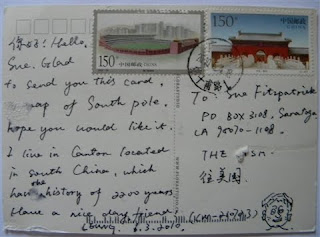 你好! Hello,
Sue. Glad
to send you this card.
map of South pole.
hope you would like it.
I live in Canton located
in south China, which
the
has history of 2200 years
Have a nice day friend!
6.3.2010.
150分
中国邮政 CHINA
150分
中国邮政
CHINA
To: Sue Fitzpatrick
PO BOX 3108, Saratoga
CA 90070-1108.
THE USA.
往美国